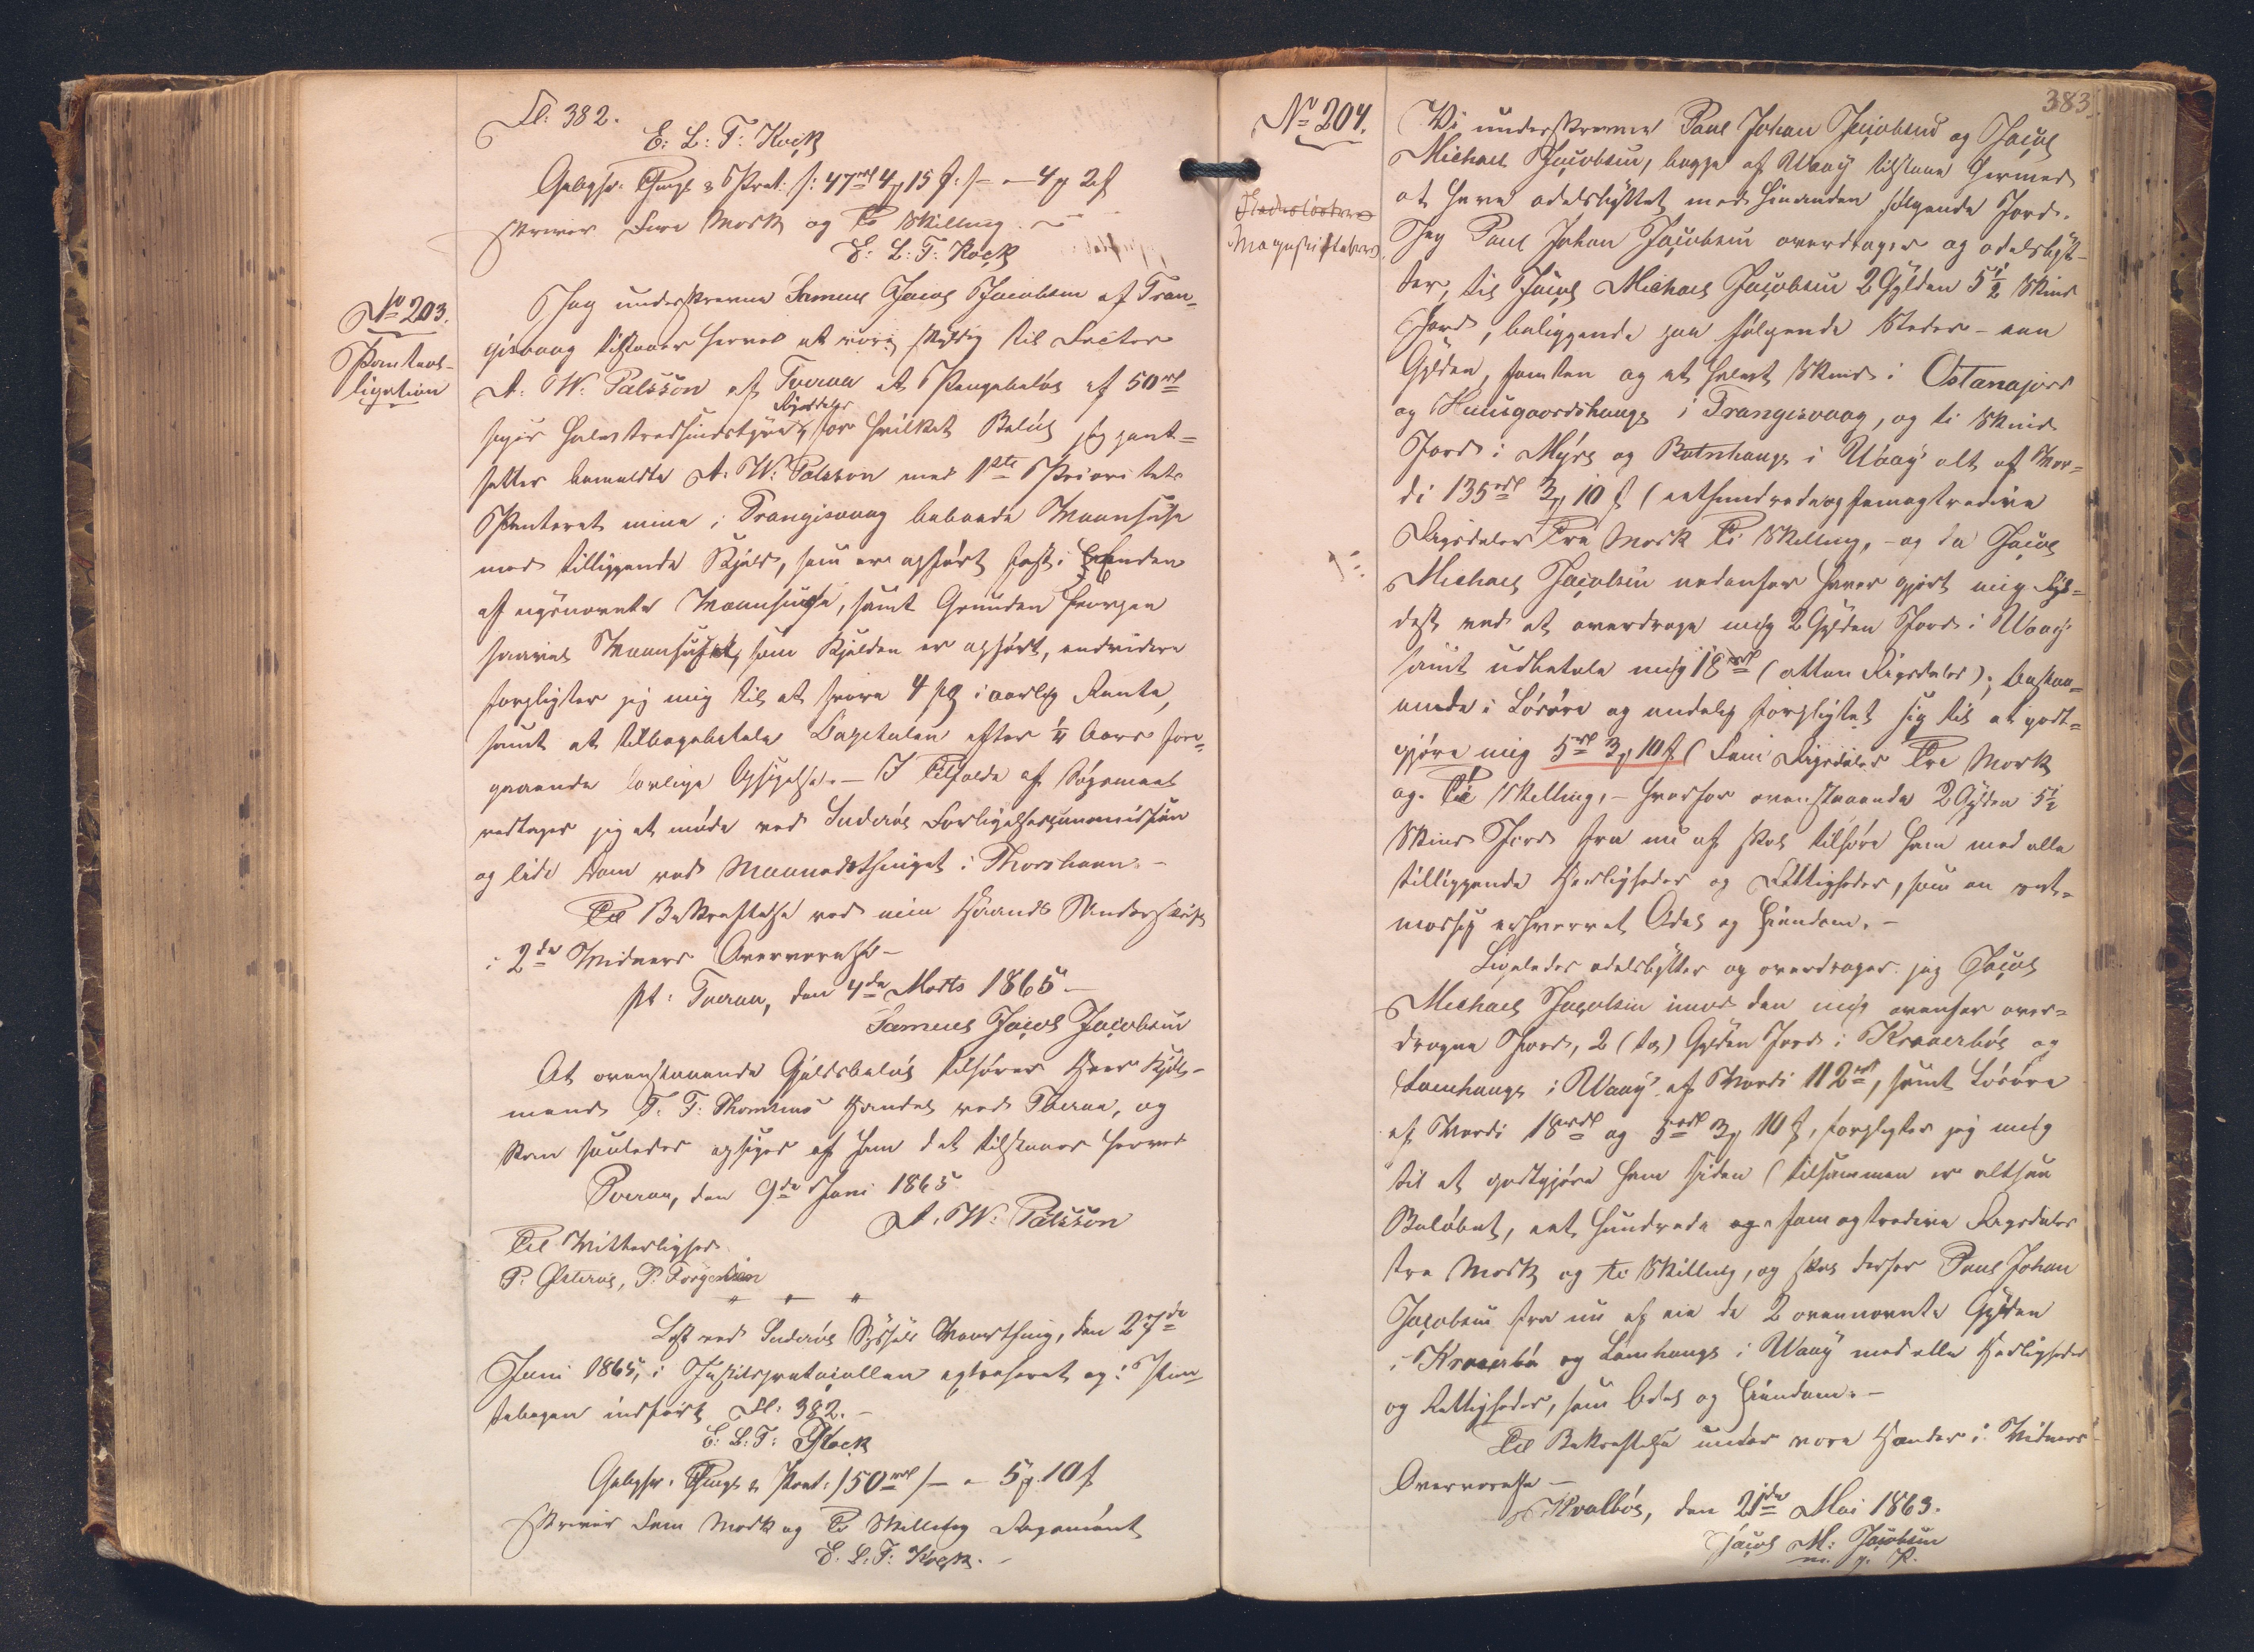 Fl: 382.
E: L: T: Kock
Gebyhr: Thgl & Prot: /: 47 rd 4 ÿ 15 ß :/ – 4 ÿ 2 ß
skriver Fire Mark og To Skilling.
E: L: T: Kock
No 203.
Pantaob-
ligation
Jeg underskrevne Samuel Jacob Jacobsen af Tran-
gisvaag tilstaaer herved at være skyldig til Factor
A. W. Pálsson af Tveraa et Pengebeløb af 50 rd
siger halvtredsindstyve Rigsdaler, for hvilket Beløb jeg pant-
sætter bemeldte A. W: Pálsson med 1ste Prioritets
Panteret mine i Trangisvaag beboede Vaanhuse
med tilliggende Kjeld, som er opført fast i Enden
af nysnævnte Vaanhuse, samt Grunden hvorpaa
saavel Vaanhuset, som Kjelden er opført, endvidere
forpligter jeg mig til at svare 4 pC i aarlig Rente,
samt at tilbagebetale Capitalen efter 1/4 Aars fore-
gaaende lovlige Opsigelse. – I Tilfælde af Søgsmaal
vedtager jeg at møde ved Suderøe Forligelsescommission
og lide Dom ved Maanedsthinget i Thorshavn. –
Til Bekræftelse ved min Haands Underskrift
i 2de Vidners Overværelse –
pt: Tveraa, den 4de Marts 1865. –
Samuel Jacob Jacobsen
At ovenstaaende Gjeldsbeløb tilhører Herr Kjøb-
mand T. F: Thomsens Handel ved Tveraa, og
kan saaledes opsiges af ham det tilstaaes herved
Tveraa, den 9de Juni 1865
A. W: Pálsson
Til Vitterlighed
P. Østerøe, P. Jørgensen
Læst ved Suderøe Syssels Vaarthing, den 27de
Juni 1865, i Justitsprotocollen extraheret og i Pan-
tebogen indført Fl: 382. –
E: L: T: Kock
Gebyhr: Thgl & Prot: / 50 rd / – 5 ÿ 10 ß
skriver Fem Mark og Ti Skilling Rigsmønt
E. L. T: Kock. –
383.
No 204.
Mageskiftebrev.
Vi underskrevne Paul Johan Jacobsen og Jacob
Michael Jacobsen, begge af Waag tilstaae hermed
at have odelsbyttet med hinanden følgende Jord.
Jeg Paul Johan Jacobsen overdrager og odelsbyt-
ter, til Jacob Michael Jacobsen 2 Gylden 5 1/2 Skind
Jord, beliggende paa følgende Steder – een
Gylden, femten og et halvt Skind i Ostanajord
og Huusgaardshauge i Trangisvaag, og ti Skind
Jord i Mýre og Botnhauge i Waag alt af Vær-
di 135 rd 3 ÿ 10 ß (eethundrede og femogtredive
Rigsdaler Tre Mark Ti Skilling, – og da Jacob
Michael Jacobsen nedenfor haver gjort mig Fyl-
dest ved at overdrage mig 2 Gylden Jord i Waag
samt udbetale mig 18 rd (atten Rigsdaler); bestaa-
ende i Løsøre og endelig forpligtet sig til at godt-
gjøre mig 5 rd 3 ÿ 10 ß (Fem Rigsdaler Tre Mark
og Ti Skilling, – hvorfor ovenstaaende 2 Gylden 5 1/2
Skind Jord fra nu af skal tilhøre ham med alle
tilliggende Herligheder og Rettigheder, som en ret-
mæssig erhvervet Odel og Eiendom. –
Ligeledes odelsbytter og overdrager jeg Jacob
Michael Jacobsen imod den mig ovenfor over-
dragne Jord, 2 (to) Gylden Jord i Kraaerbøe og
Lamhauge i Waag af Værdi 112 rd, samt Løsøre
af Værdi 18 rd og 5 rd 3 ÿ 10 ß, forpligter jeg mig
til at godtgjøre ham siden (tilsammen er altsaa
Beløbet, eet hundrede og fem og tredive Rigsdaler
tre Mark og ti Skilling, og skal derfor Paul Johan
Jacobsen fra nu af eie de 2 ovennævnte Gylden
i Kraaerbø og Lamhauge i Waag med alle Herligheder
og Rettigheder, som Odel og Eiendom. –
Til Bekræftelse under vore Hænder i Vidners
Overværelse –
Kvalbøe, den 21de Mai 1863.
Jacob M: Jacobsen
m. p. P.